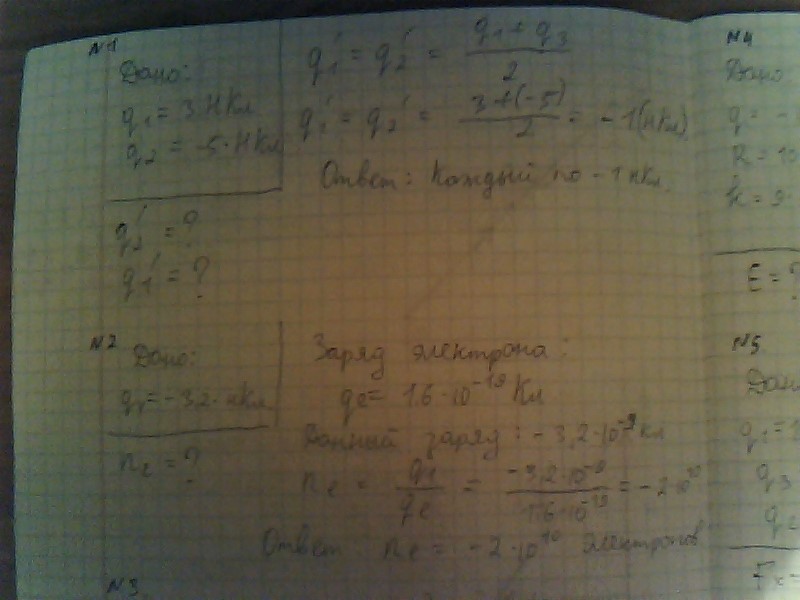 N1
Дано:
q1 = 3 нКл
q2 = -5 · нКл
q2' = ?
q1' = ?
q1' = q2' = q1 + q3 / 2
q1' = q2' = 3 + (-5) / 2 = -1 (нКл)
Ответ: Каждый по -1 нКл.
N2
Дано:
q1 = -3,2 · нКл
ne = ?
Заряд электрона:
qe = 1.6 · 10^-19 Кл
Данный заряд: -3,2 · 10^-9 Кл
ne = q1 / qe = -3,2 · 10^-9 / 1.6 · 10^-19 = -2 · 10^10
Ответ ne = -2 · 10^10 электронов
N3
N4
Дано
q = -
R = 10
k = 9
E = ?
N5
Дано
q1 =
q3
q2